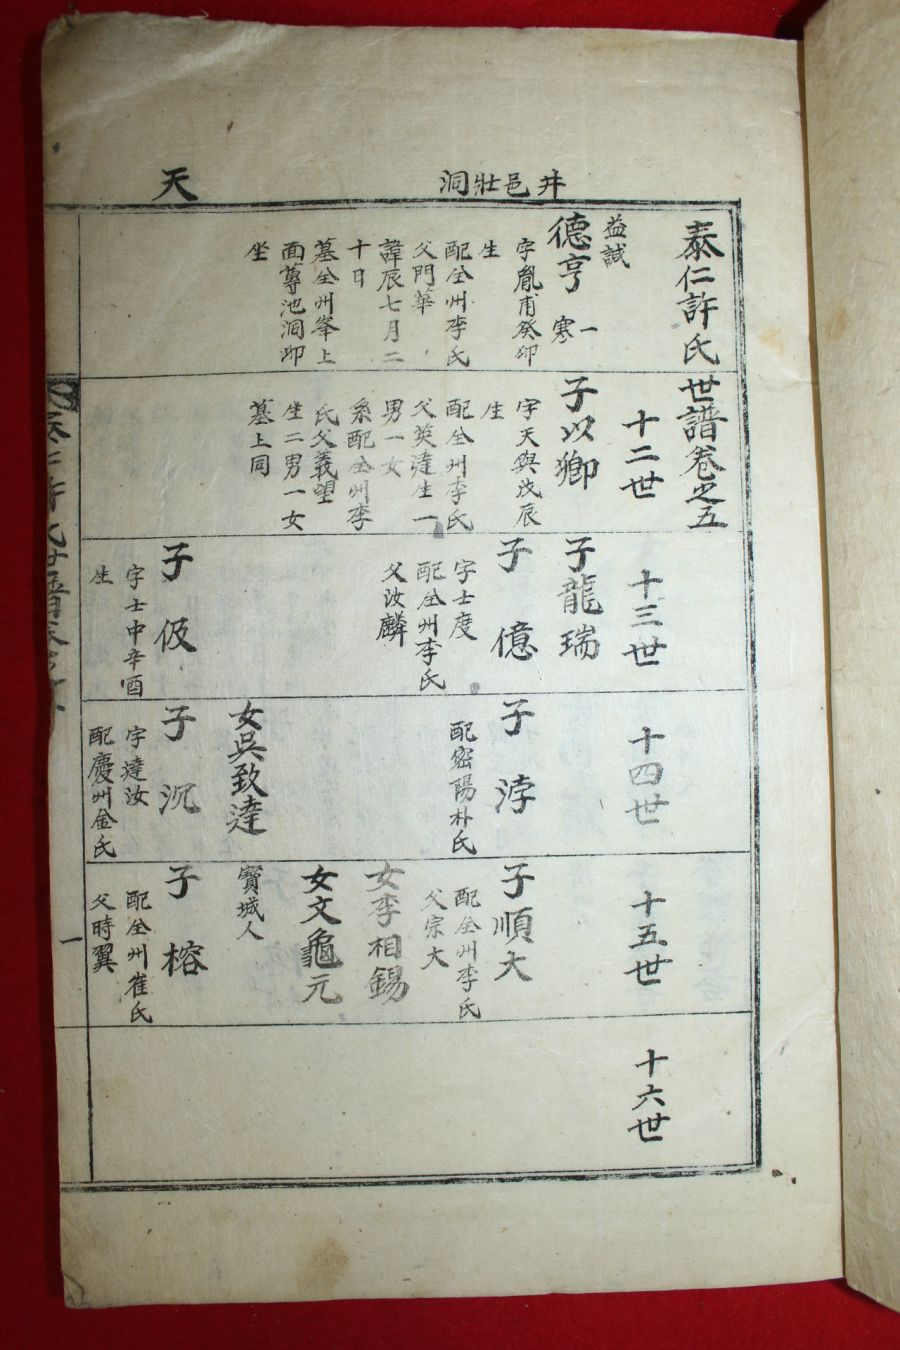 井邑壯洞
天
泰仁許氏世譜卷之五
益誠
德亨
一寒
字胤甫癸卯
生
配全州李氏
父門華
諱辰七月二
十日
墓全州峯上
面蓴池洞卯
坐
十二世
子以卿
字天與戊辰
生
配全州李氏
父英達生一
男一女
系配全州李
氏父義望
生二男一女
墓上同
十三世
子龍瑞
子億
字士度
配全州李氏
父汝麟
子伋
字士中辛酉
生
十四世
子浡
配密陽朴氏
女吳致達
子沉
字達汝
配慶州金氏
十五世
子順大
配全州李氏
父宗大
女李相錫
女文龜元
寶城人
子榕
配全州崔氏
父時翼
十六世
一